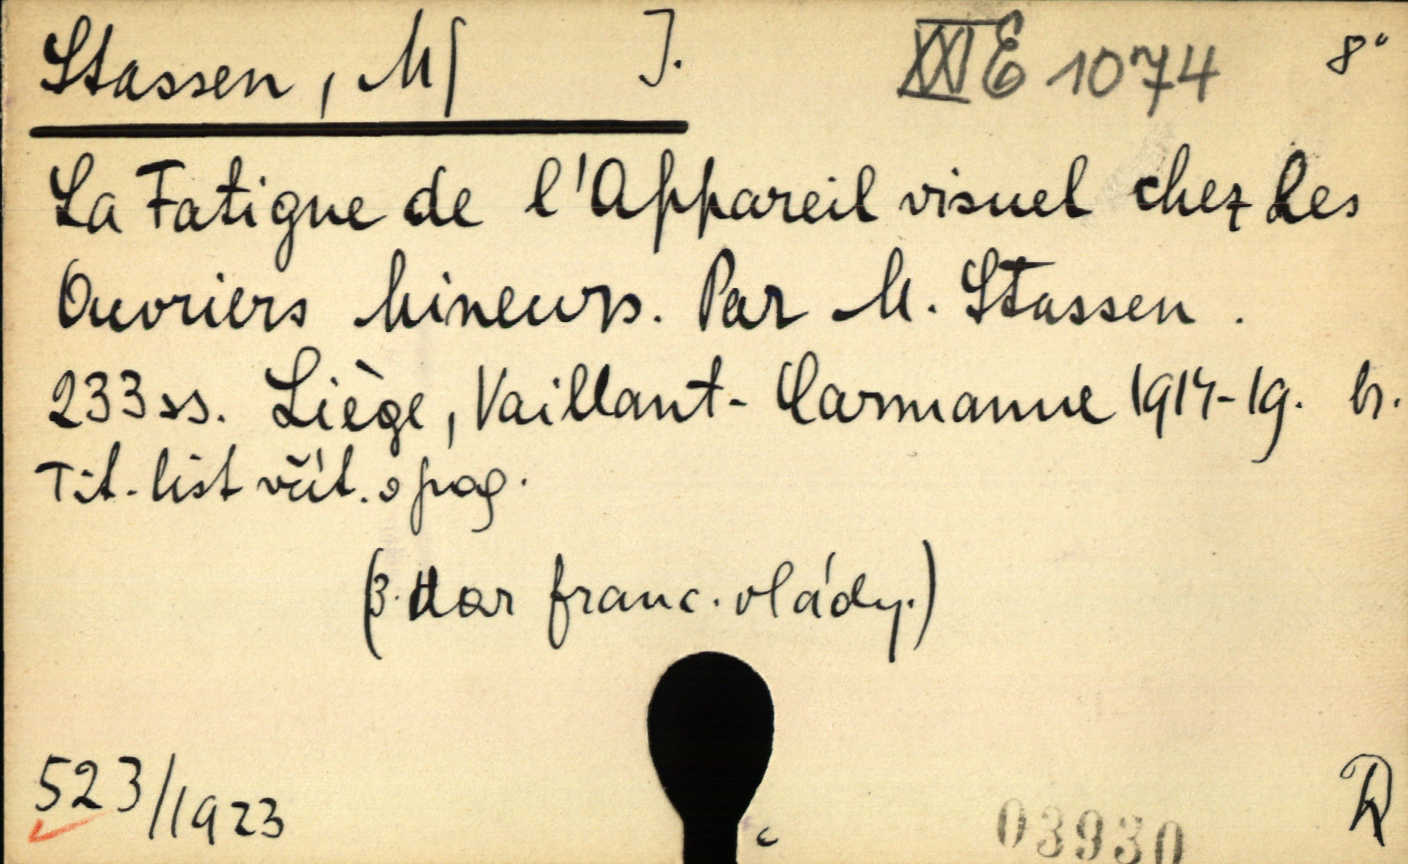 Stassen, M J. XXI E 1074 8°
La Fatigue de l'Appareil visuel chez les
Ouvriers Mineurs. Par M. Stassen.
233 ss. Liège, Vaillant-Carmanne 1914-19. br.
Tit. list včít. s pag.
(3. dar franc. vlády.)
523/1923
03930